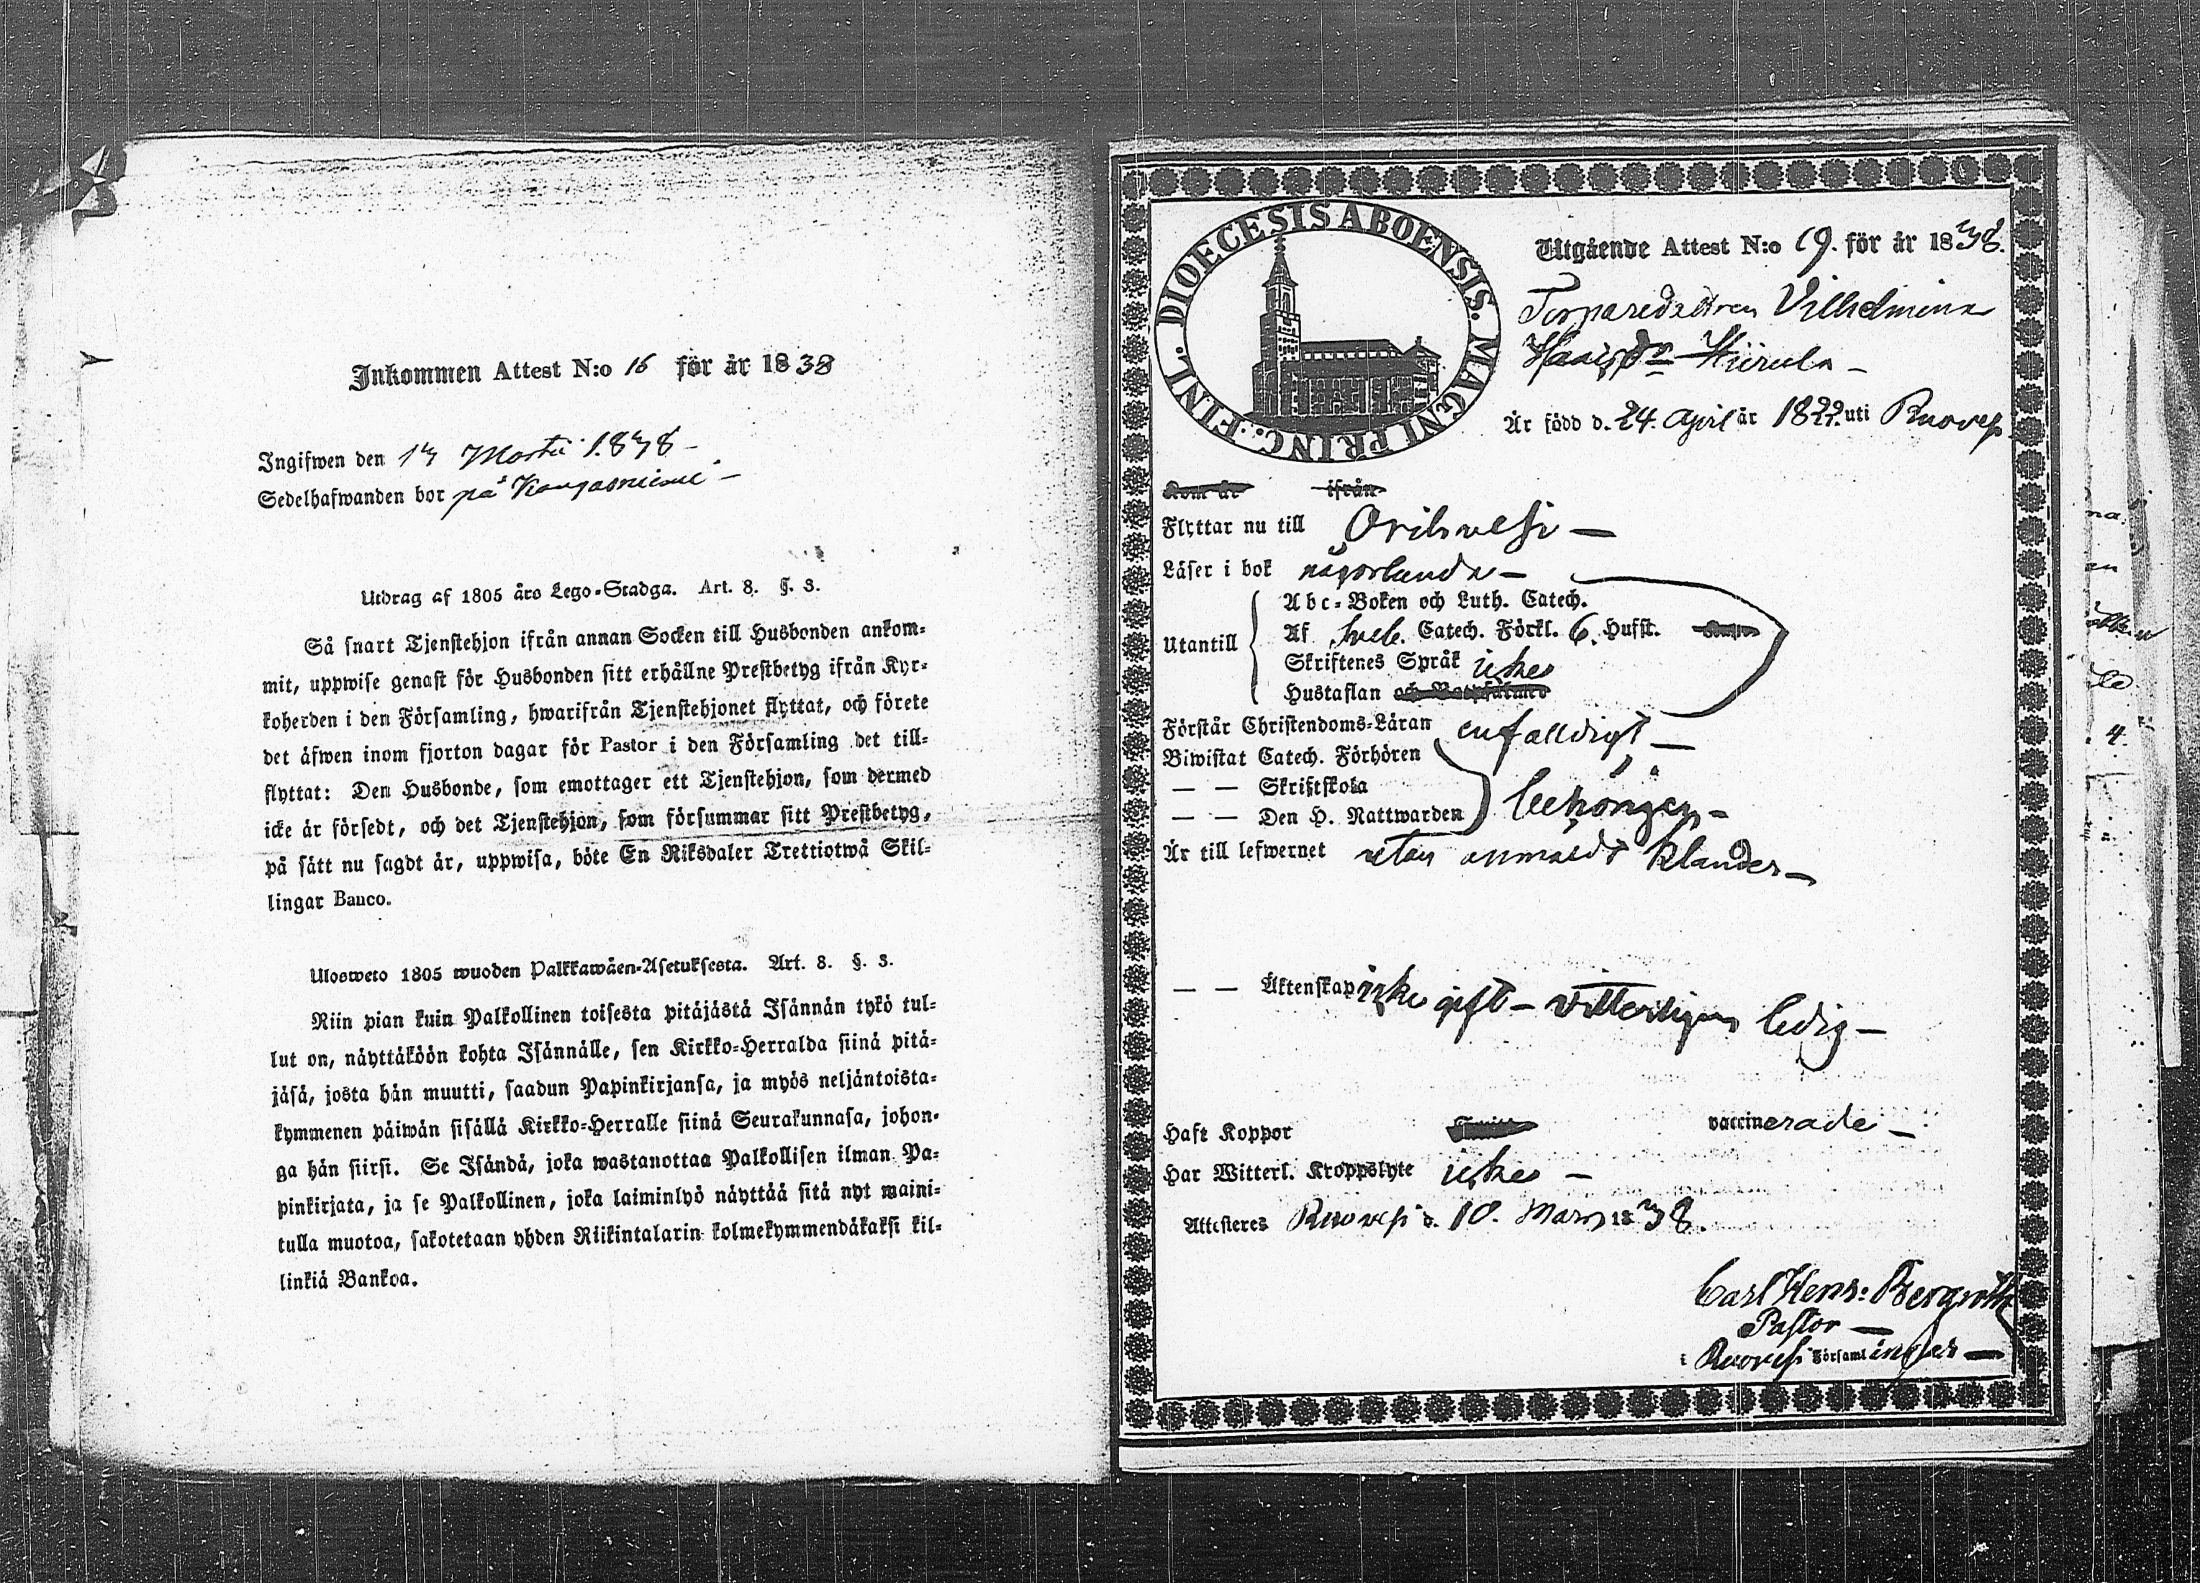 Inkommen Attest N:o 16 för år 1838
Ingifwen den 13 Martii 1838 -
Sedelhafwanden bor på Kangasniemi -
Utdrag af 1805 års Lego-Stadga. Art. 8. §. 3.
Så snart Tjenstehjon ifrån annan Socken till Husbonden ankom-
mit, uppwise genast för Husbonden sitt erhållne Prestbetyg ifrån Kyr-
koherden i den Församling, hwarifrån Tjenstehjonet flyttat, och förete
det äfwen inom fjorton dagar för Pastor i den Församling det till-
flyttat: Den Husbonde, som emottager ett Tjenstehjon, som dermed
icke är försedt, och det Tjenstehjon, som försummar sitt Prestbetyg,
på sätt nu sagdt är, uppwisa, böte En Riksdaler Trettiotwå Skil-
lingar Banco.
Ulosweto 1805 wuoden Palkkawäen-Asetuksesta. Art. 8. §. 3.
Niin pian kuin Palkollinen toisesta pitäjästä Isännän tykö tul-
lut on, näyttäköön kohta Isännälle, sen Kirkko-Herralda siinä pitä-
jäsä, josta hän muutti, saadun Papinkirjansa, ja myös neljäntoista-
kymmenen päiwän sisällä Kirkko-Herralle siinä Seurakunnasa, johon-
ga hän siirsi. Se Isändä, joka wastanottaa Palkollisen ilman Pa-
pinkirjata, ja se Palkollinen, joka laiminlyö näyttää sitä nyt maini-
tulla muotoa, sakotetaan yhden Riikintalarin kolmekymmendäkaksi kil-
linkiä Bankoa.
DIOECESIS ABOENSIS. MAGNI PRINC. FINL.
Utgående Attest N:o 19. för år 1838.
Torparedottren Vilhelmina
Hiirula -
Är född d. 24. April år 1822. uti Ruovesi
Kom år ifrån
Flyttar nu till Orihvesi -
Läser i bok någorlunda -
Utantill
Abc-Boken och Luth. Catech.
Af Sveb. Catech. Förkl. 6. Hufst.
Skriftenes Språk ickes
Hustaflan och Botpsalmer
Förstår Christendoms-Läran enfalldigt -
Biwistat Catech. Förhören
— — Skriftskola
— — Den H. Nattwarden behörigen -
Är till lefwernet utan anmäldt klander -
— — Äktenskap icke gift - vitterligen ledig -
Haft Koppor vaccinerade -
Har Witterl. Kroppslyte ickes -
Attesteres Ruovesi d. 10. Mars 1838.
Carl Henr: Bergroth
Pastor -
i Ruovesi Församlingar -